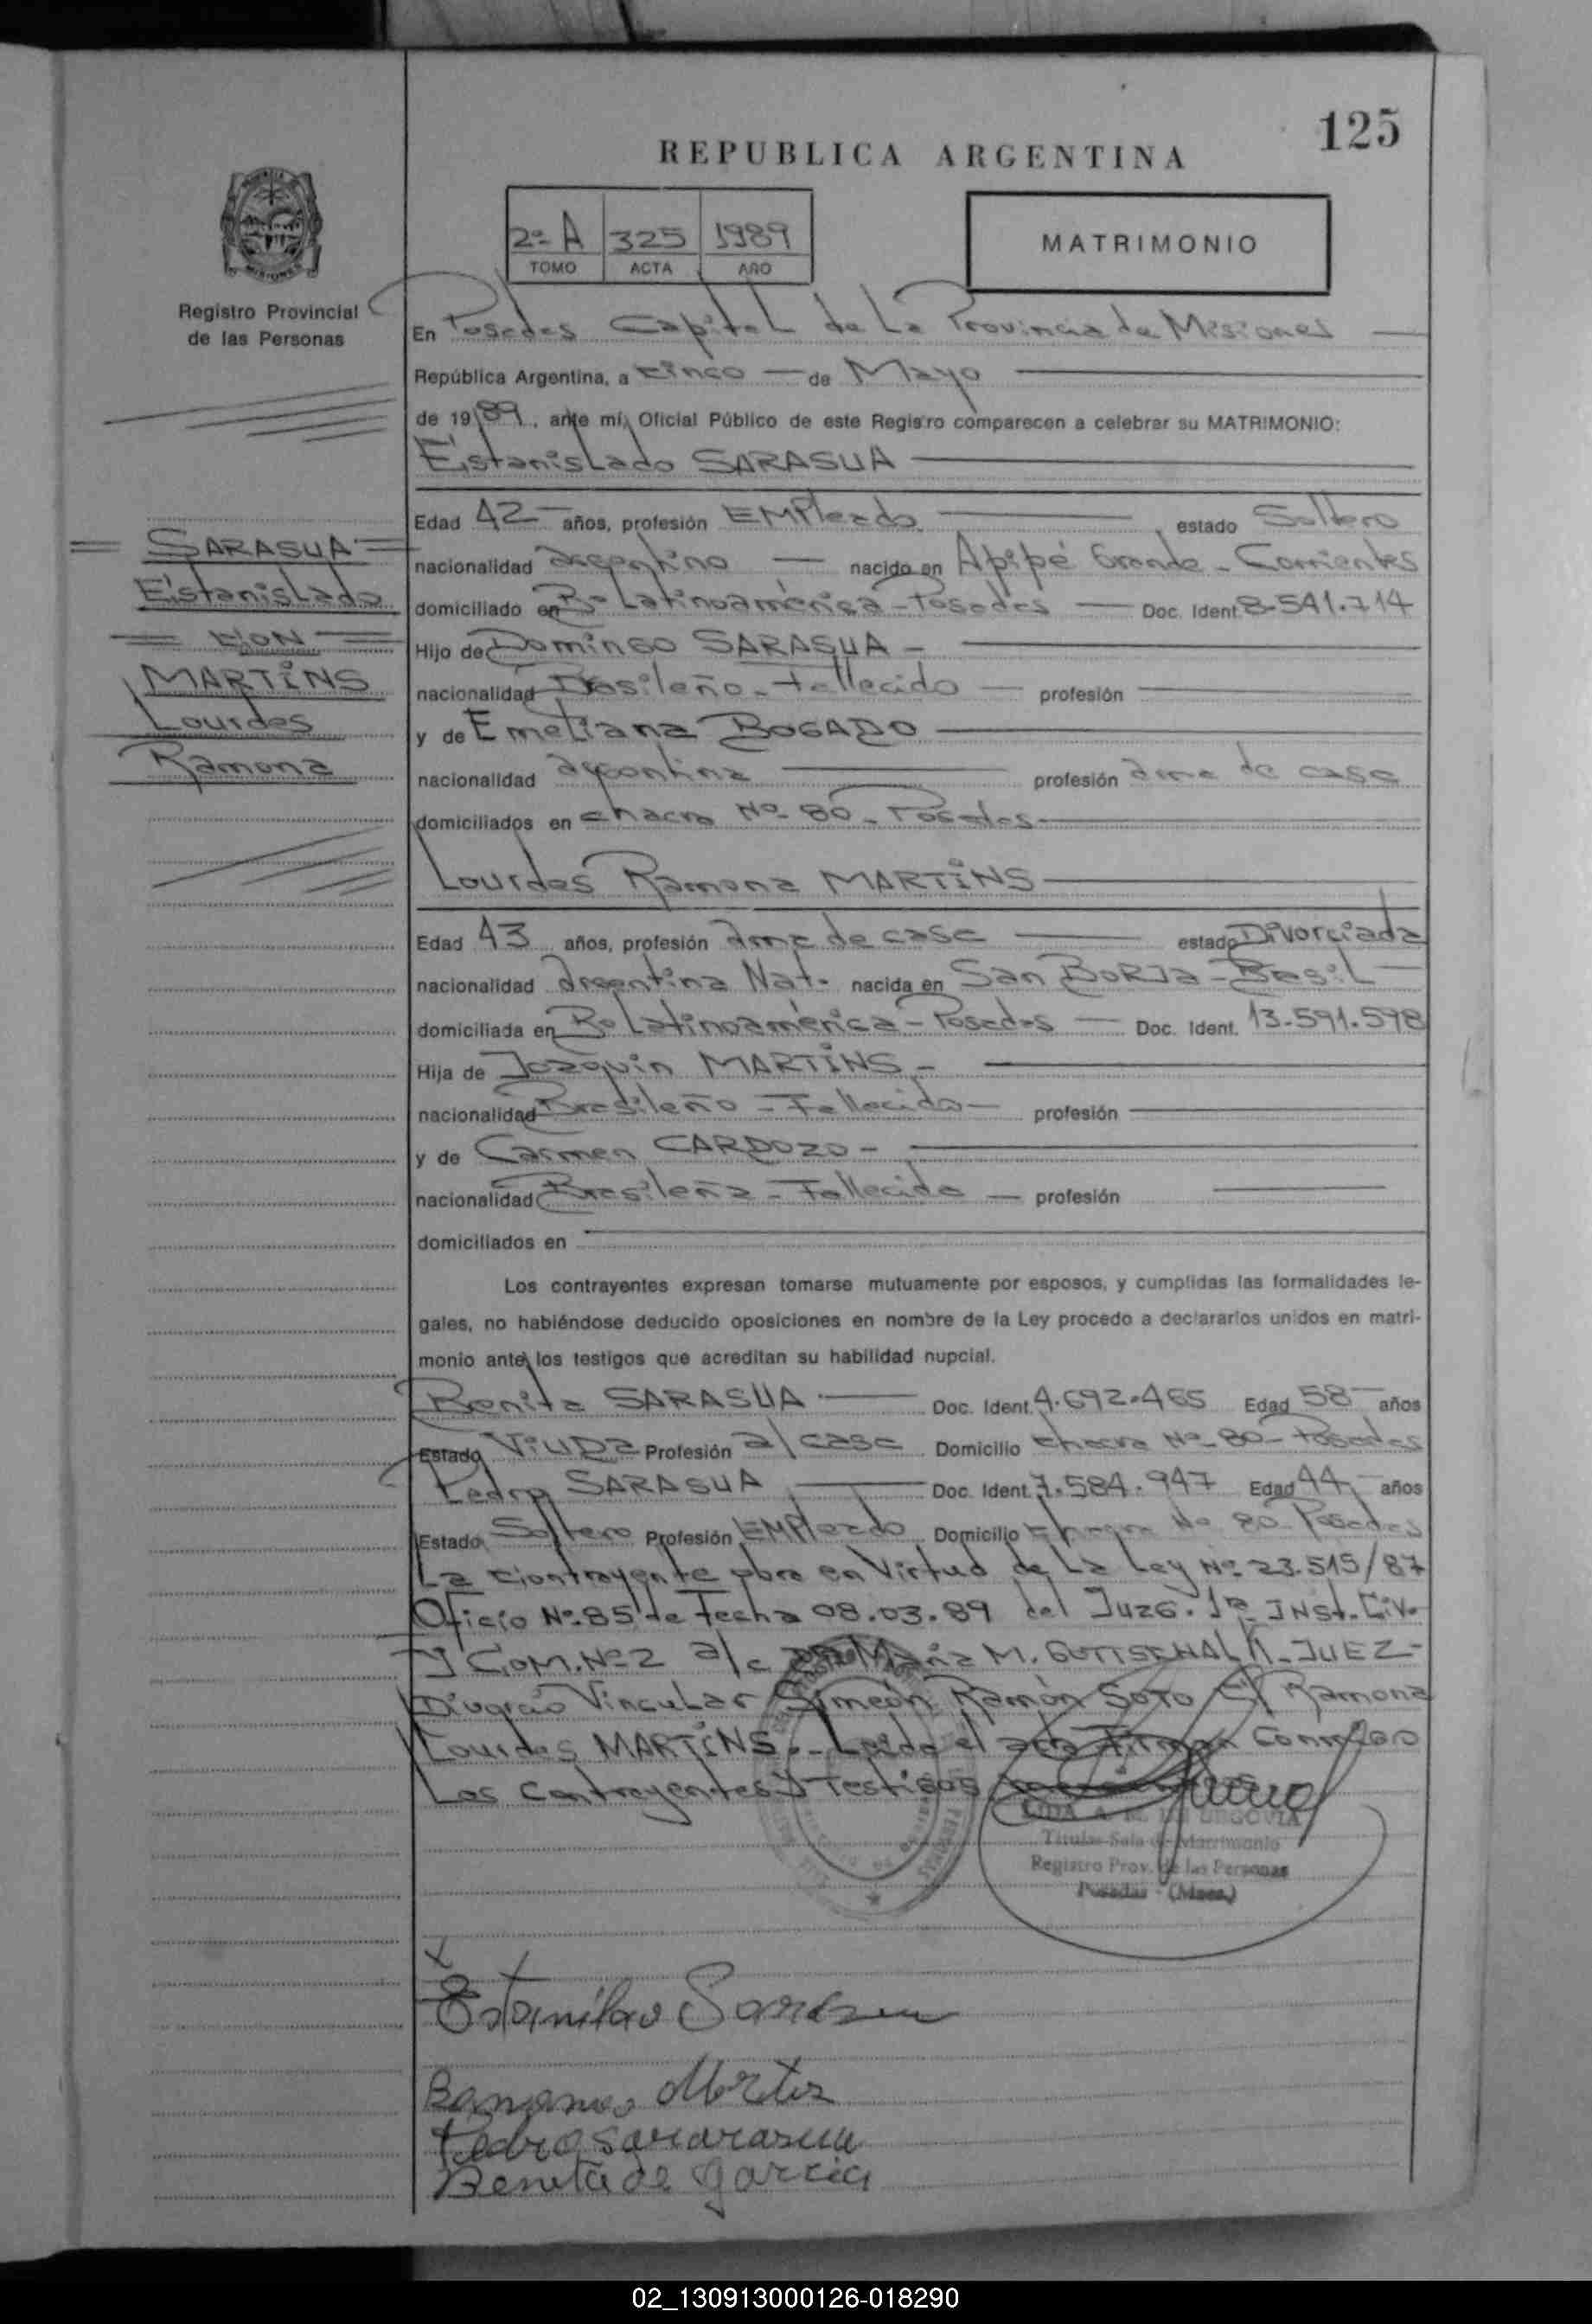 125
REPUBLICA ARGENTINA
2º A 325 1989
TOMO ACTA AÑO
MATRIMONIO
MISIONES
Registro Provincial
de las Personas
En Posadas Capital de La Provincia de Misiones
República Argentina, a cinco de Mayo
de 1989, ante mí, Oficial Público de este Registro comparecen a celebrar su MATRIMONIO:
Estanislado SARASUA
Edad 42 años, profesión EMPleado estado Soltero
SARASUA
Estanislado
CON
MARTINS
Lourdes
Ramona
nacionalidad argentino nacido en Apipé Grande - Corrientes
domiciliado en Bº Latinoamérica - Posadas Doc. Ident. 8.541.714
Hijo de Domingo SARASUA -
nacionalidad Brasileño - fallecido profesión
y de Emeliana BOGADO
nacionalidad argentina profesión ama de casa
domiciliados en chacra Nº 80 - Posadas
Lourdes Ramona MARTINS
Edad 43 años, profesión ama de casa estado Divorciada
nacionalidad argentina Nat. nacida en San BORJA - Brasil
domiciliada en Bº Latinoamérica - Posadas Doc. Ident. 13.591.598
Hija de Joaquin MARTINS -
nacionalidad Brasileño - Fallecido profesión
y de Carmen CARDOZO -
nacionalidad Brasileña - Fallecida profesión
domiciliados en
Los contrayentes expresan tomarse mutuamente por esposos, y cumplidas las formalidades le-
gales, no habiéndose deducido oposiciones en nombre de la Ley procedo a declararlos unidos en matri-
monio ante los testigos que acreditan su habilidad nupcial.
Benita SARASUA Doc. Ident. 4.692.465 Edad 58 años
Estado Viuda Profesión a/ casa Domicilio chacra Nº 80 - Posadas
Pedro SARASUA Doc. Ident. 7.584.947 Edad 44 años
Estado Soltero Profesión EMPleado Domicilio chacra Nº 80 Posadas
La contrayente obra en Virtud de La Ley Nº 23.515/87
Oficio Nº 85 de Fecha 08.03.89 del Juzg. 1ra INSt. Civ.
Y COM. Nº 2 a/c María M. GOTTSCHALK - JUEZ -
Divorcio Vincular Simeón Ramón SOTO Ramona
Lourdes MARTINS. - Leída el acta Firman Conmigo
Los Contrayentes y Testigos
LIDA A. DE SEGOVIA
Titular Sala de Matrimonio
Registro Prov. de las Personas
Posadas - (Mnes.)
Estanilao Sarasua
Pedro
Benita de Garcia
02_130913000126-018290